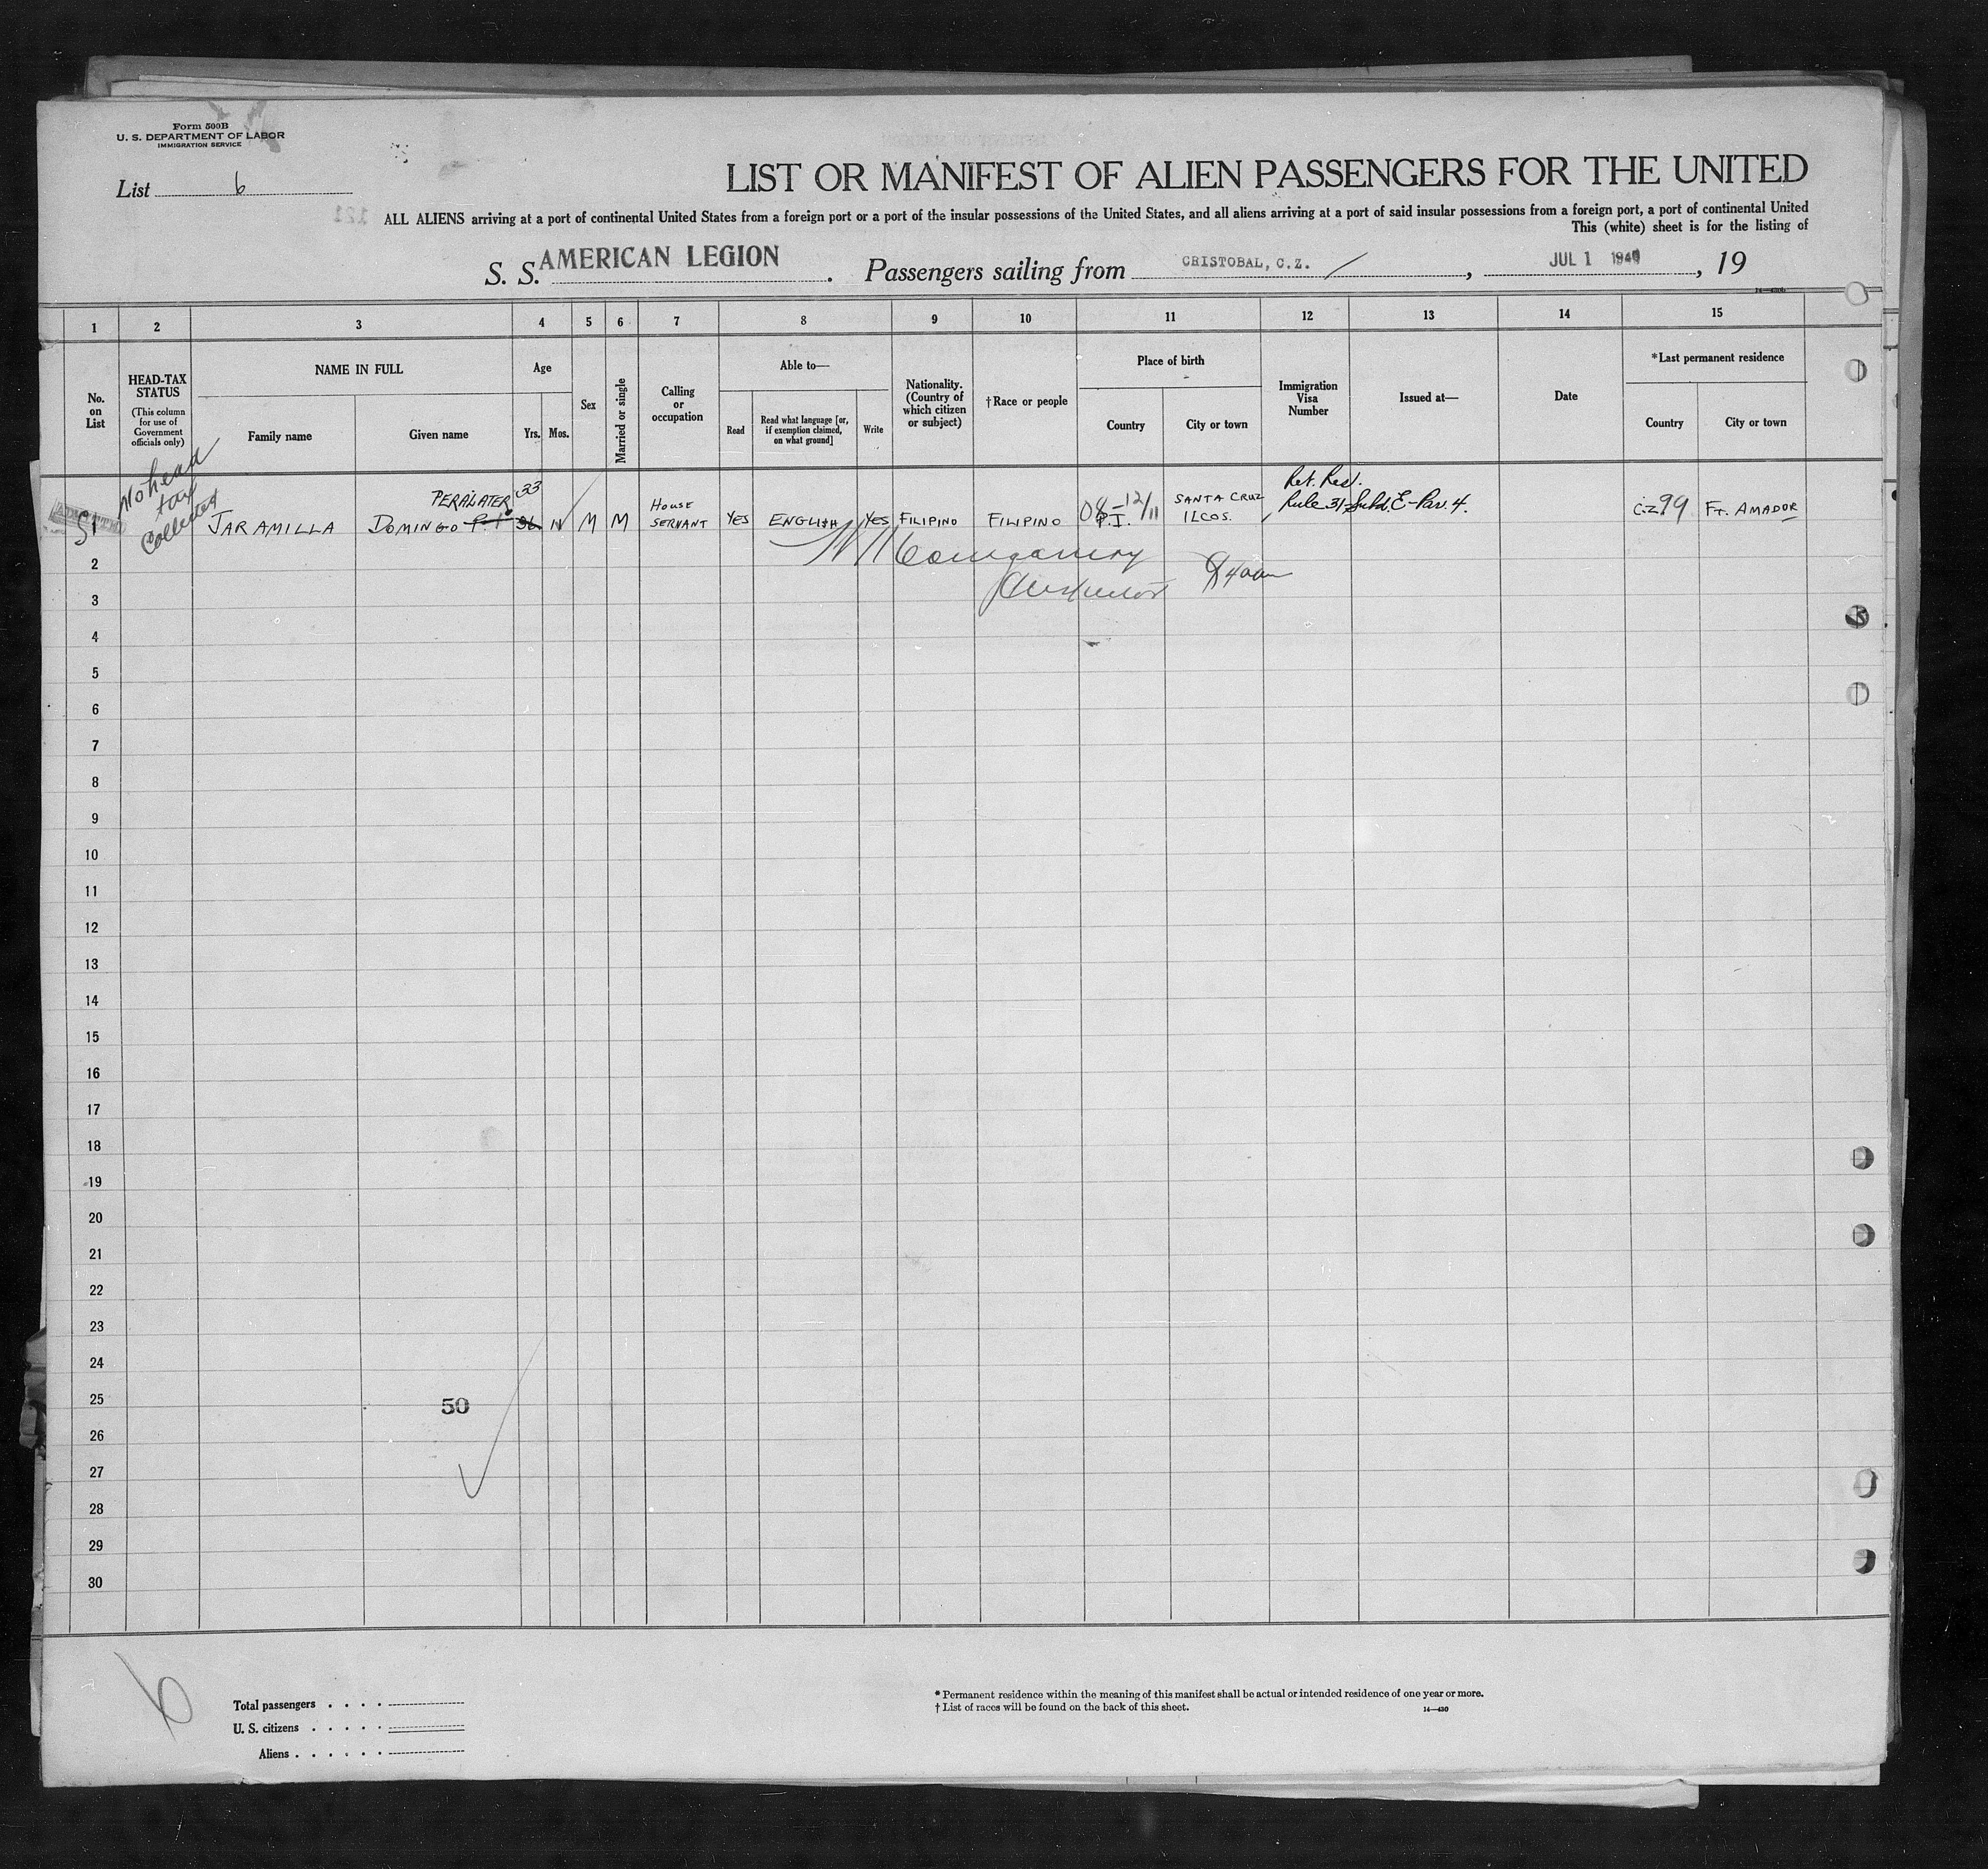 Form 500B
U. S. DEPARTMENT OF LABOR
IMMIGRATION SERVICE
List 6
LIST OR MANIFEST OF ALIEN PASSENGERS FOR THE UNITED
121
ALL ALIENS arriving at a port of continental United States from a foreign port or a port of the insular possessions of the United States, and all aliens arriving at a port of said insular possessions from a foreign port, a port of continental United
This (white) sheet is for the listing of
S. S. AMERICAN LEGION. Passengers sailing from CRISTOBAL, C.Z., JUL 1 1940, 19
1 2 3 4 5 6 7 8 9 10 11 12 13 14 15
No. on List
HEAD-TAX STATUS (This column for use of Government officials only)
NAME IN FULL
Family name
Given name
Age
Yrs. Mos.
Sex
Married or single
Calling or occupation
Able to—
Read
Read what language [or, if exemption claimed, on what ground]
Write
Nationality. (Country of which citizen or subject)
†Race or people
Place of birth
Country
City or town
Immigration Visa Number
Issued at—
Date
*Last permanent residence
Country
City or town
No head tax collected
1 JARAMILLA DOMINGO P. PERALATER 33 M M HOUSE SERVANT YES ENGLISH YES FILIPINO FILIPINO 08-12/11 P.I. SANTA CRUZ ILCOS. Ret. Res. Rule 31-Subd. E-Par. 4. C.Z. 99 FT. AMADOR
Inspector
2
3
4
5
6
7
8
9
10
11
12
13
14
15
16
17
18
19
20
21
22
23
24
25
50
26
27
28
29
30
6
Total passengers
U. S. citizens
Aliens
* Permanent residence within the meaning of this manifest shall be actual or intended residence of one year or more.
† List of races will be found on the back of this sheet.
14—430